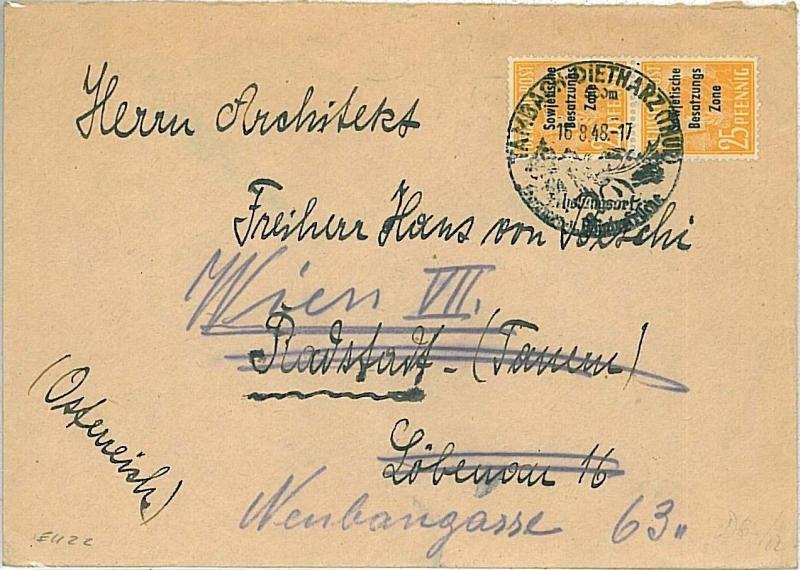 Herrn Architekt
Freiherr Hans von
Wien VII.
Radstadt - (Tauern)
Löbenau 16
Neubaugasse 63"
(Österreich.)
Sowjetische
Besatzungs
Zone
Sowjetische
Besatzungs
Zone
25 PFENNIG
TAMBACH-DIETHARZ (THÜR)
16.8.48.-17
Erholungsort
E1122